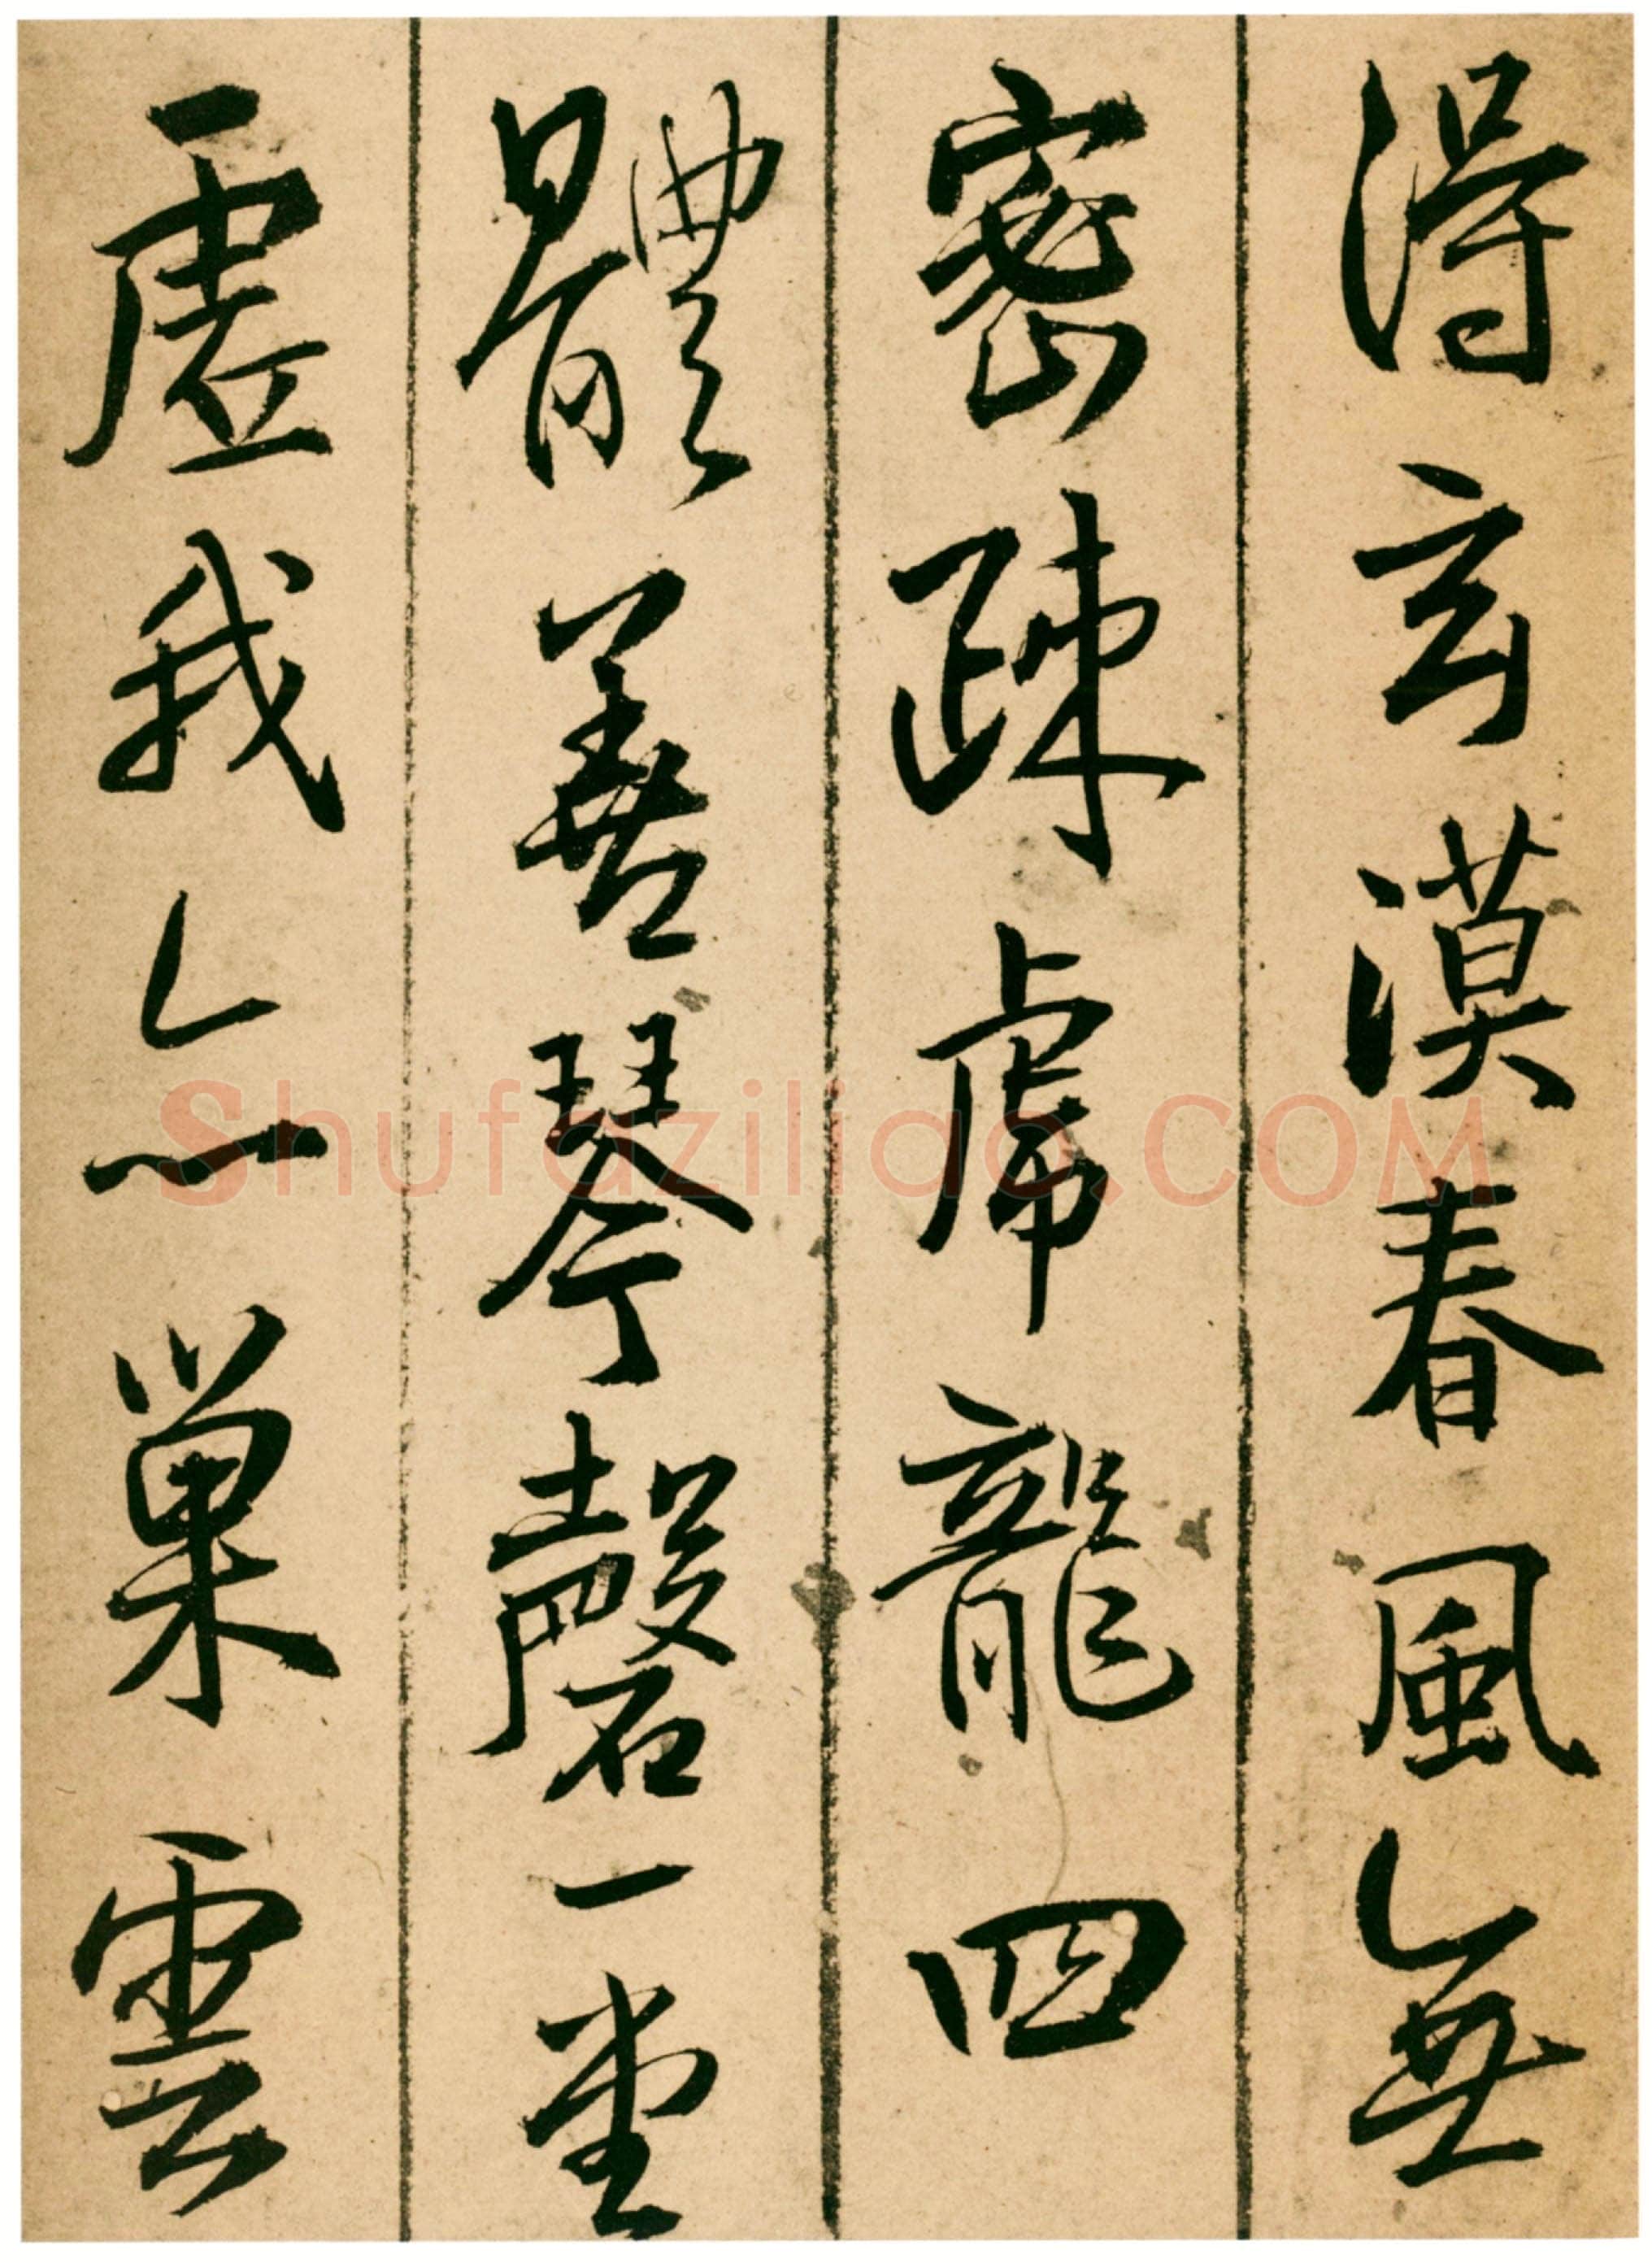 得玄漠春風無
密疎虎龍四
體善琴磬一堂
虛我亦巢雲
Shufaziliao.COM